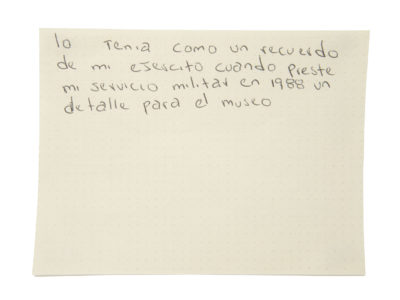 lo tenia como un recuerdo
de mi ejercito cuando preste
mi servicio militar en 1988 un
detalle para el museo